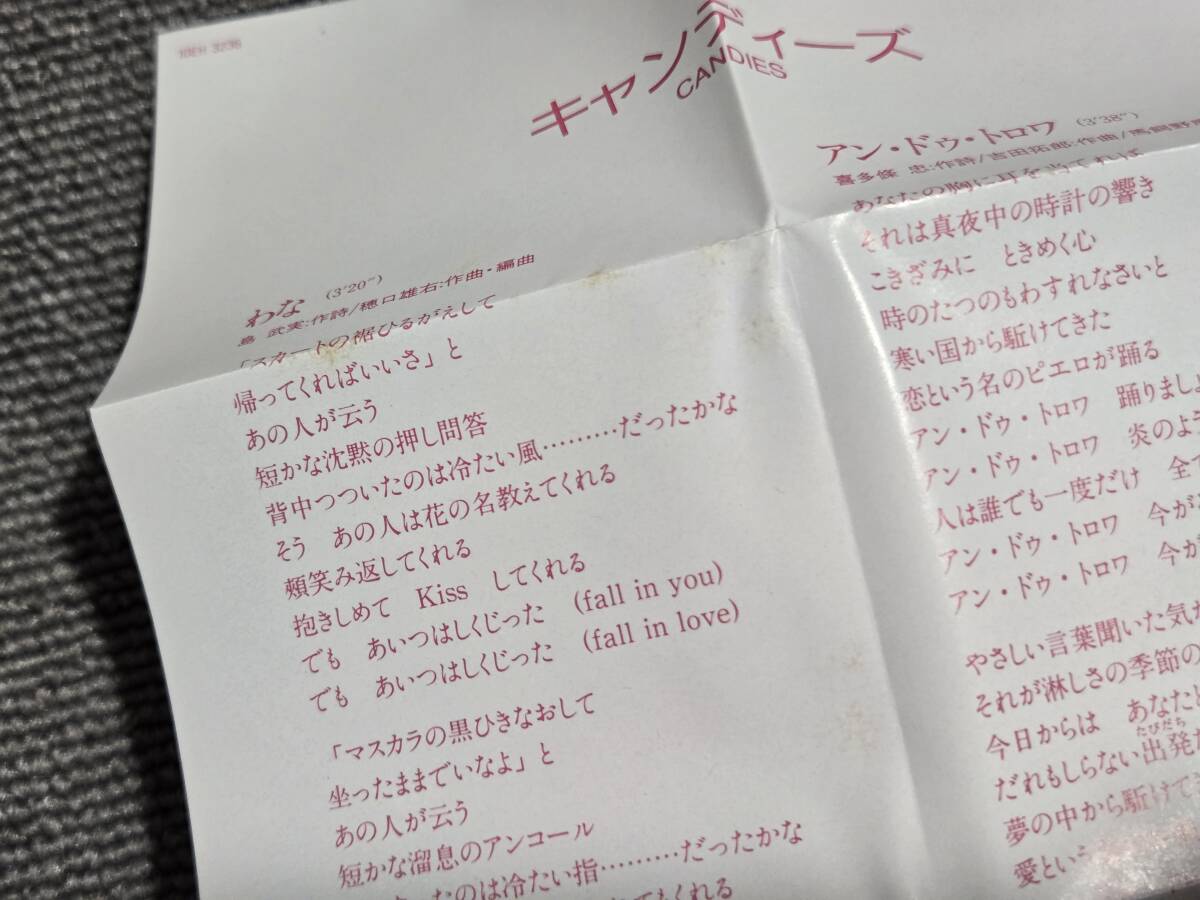 10EH 3236
キャンディーズ
CANDIES
わな (3'20")
島 武実:作詩/穂口雄右:作曲・編曲
「スカートの裾ひるがえして
帰ってくれればいいさ」と
あの人が云う
短かな沈黙の押し問答
背中つついたのは冷たい風………だったかな
そう あの人は花の名教えてくれる
頬笑み返してくれる
抱きしめて Kiss してくれる
でも あいつはしくじった (fall in you)
でも あいつはしくじった (fall in love)
「マスカラの黒ひきなおして
坐ったままでいなよ」と
あの人が云う
短かな溜息のアンコール
たのは冷たい指………だったかな
てもくれる
アン・ドゥ・トロワ (3'38")
喜多條 忠:作詩/吉田拓郎:作曲/馬飼野
あなたの胸に耳を当てれば
それは真夜中の時計の響き
こきざみに ときめく心
時のたつのもわすれなさいと
寒い国から駈けてきた
恋という名のピエロが踊る
アン・ドゥ・トロワ 踊りましょ
アン・ドゥ・トロワ 炎のよう
人は誰でも一度だけ 全て
アン・ドゥ・トロワ 今が
アン・ドゥ・トロワ 今が
やさしい言葉聞いた気が
それが淋しさの季節の
今日からは あなた
だれもしらない出発
たびだち
夢の中から駈けて
愛とい